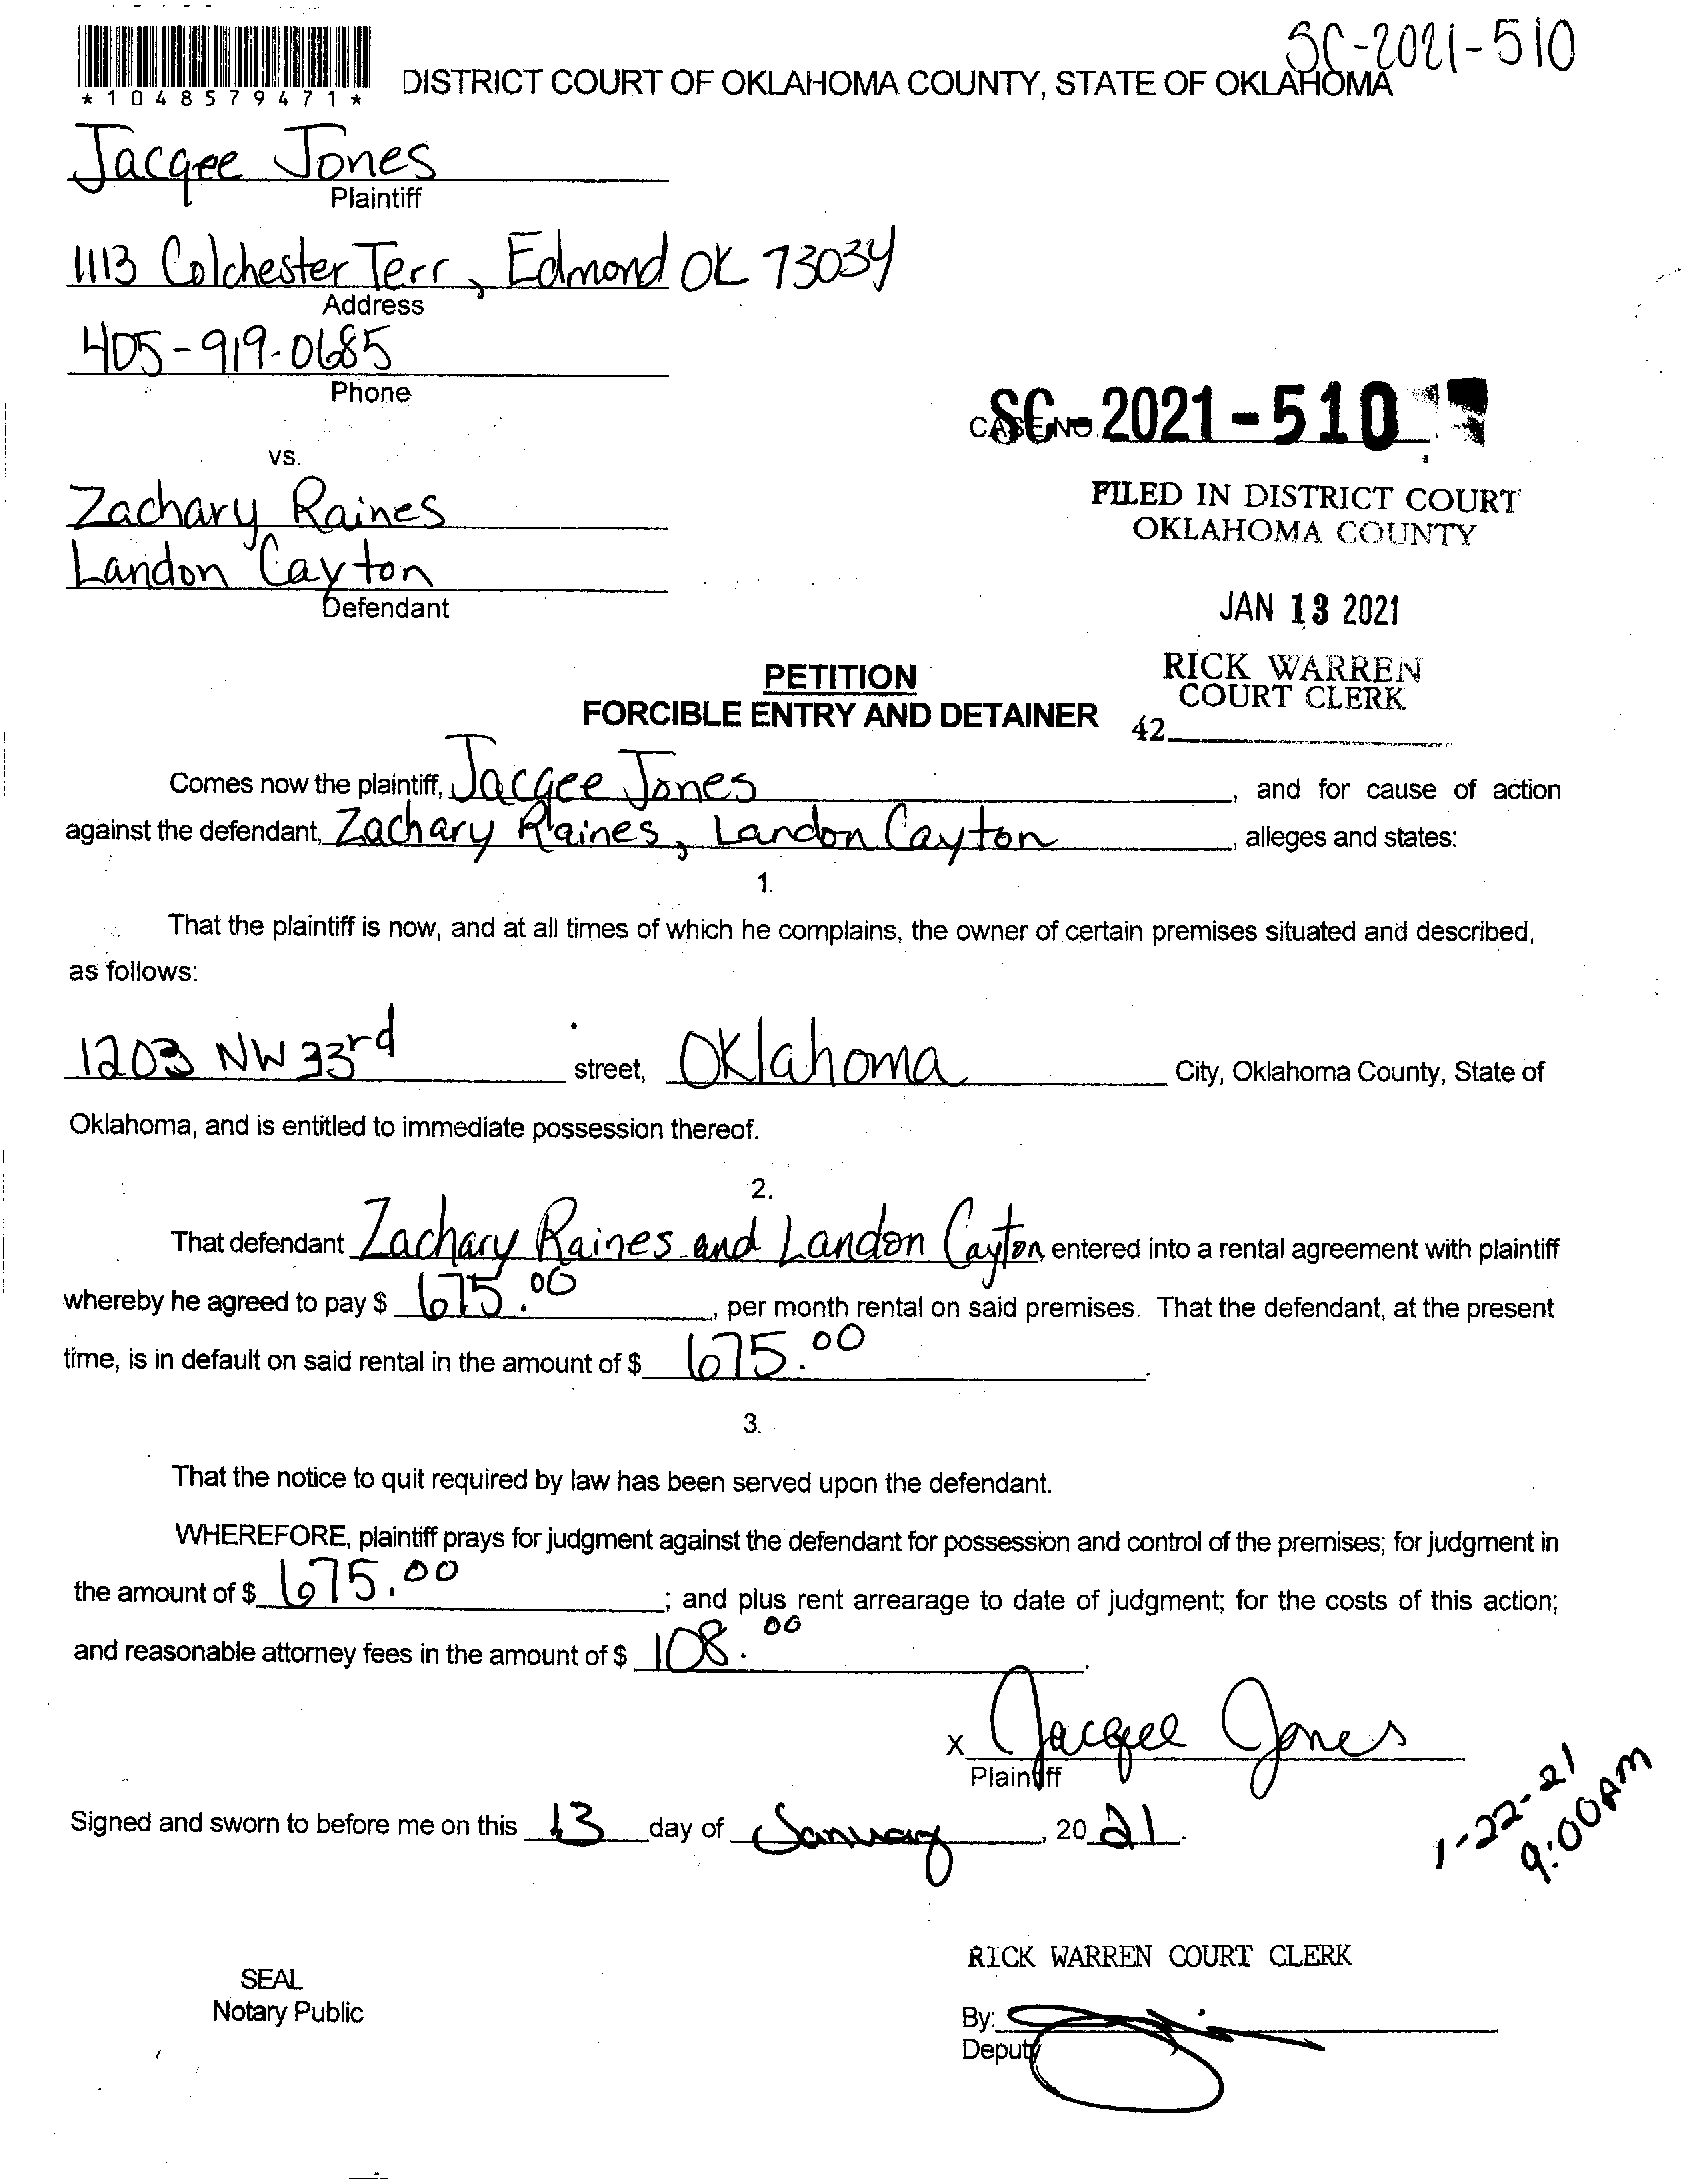 SC-2021-510
*1048579471*
DISTRICT COURT OF OKLAHOMA COUNTY, STATE OF OKLAHOMA
Jacqee Jones
Plaintiff
1113 Colchester Terr, Edmond OK 73034
Address
405-919-0685
Phone
CASE NO. SC-2021-510
vs.
Zachary Raines
Landon Cayton
Defendant
FILED IN DISTRICT COURT
OKLAHOMA COUNTY
JAN 13 2021
RICK WARREN
COURT CLERK
42
PETITION
FORCIBLE ENTRY AND DETAINER
Comes now the plaintiff, Jacqee Jones, and for cause of action
against the defendant, Zachary Raines, Landon Cayton, alleges and states:
1.
That the plaintiff is now, and at all times of which he complains, the owner of certain premises situated and described,
as follows:
1203 NW 33rd street, Oklahoma City, Oklahoma County, State of
Oklahoma, and is entitled to immediate possession thereof.
2.
That defendant Zachary Raines and Landon Cayton entered into a rental agreement with plaintiff
whereby he agreed to pay $ 675.00, per month rental on said premises. That the defendant, at the present
time, is in default on said rental in the amount of $ 675.00.
3.
That the notice to quit required by law has been served upon the defendant.
WHEREFORE, plaintiff prays for judgment against the defendant for possession and control of the premises; for judgment in
the amount of $ 675.00; and plus rent arrearage to date of judgment; for the costs of this action;
and reasonable attorney fees in the amount of $ 108.00.
x Jacqee Jones
Plaintiff
Signed and sworn to before me on this 13 day of January, 2021.
1-22-21
9:00AM
RICK WARREN COURT CLERK
SEAL
Notary Public
By:
Deputy